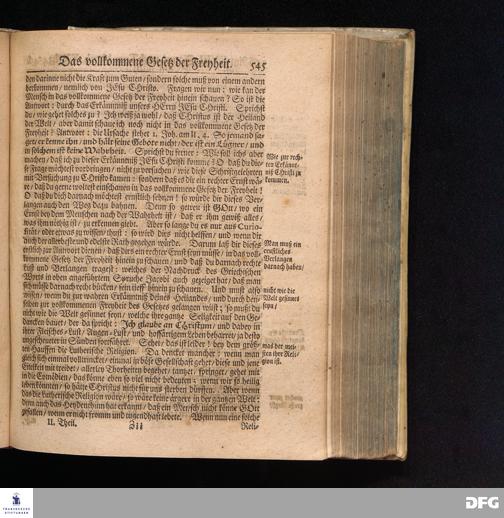 Das vollkommene Gesetz der Freyheit. 545
den darinne nicht die Kraft zum Guten / sondern solche muß von einem andern
herkommen / nemlich von JEsu CHristo. Fragen wir nun: wie kan der
Mensch in das vollkommene Gesetz der Freyheit hinein schauen? So ist die
Antwort: durch das Erkänntniß unsers HErrn JEsu Christi. Sprichst
du / wie gehet solches zu? Ich weiß ja wohl / daß Christus ist der Heiland
der Welt / aber damit schaue ich noch nicht in das vollkommene Gesetz der
Freyheit? Antwort: die Ursache stehet 1. Joh. am II. 4. So jemand sa-
get / er kenne ihn / und hält seine Gebote nicht / der ist ein Lügner / und
in solchem ist keine Warheit. Sprichst du ferner: Wie soll ichs aber
machen / daß ich zu dieser Erkänntniß JEsu Christi komme? O daß du die-
se Frage möchtest vorbringen / nicht zu versuchen / wie diese Schriftgelehrten
mit Versuchung zu Christo kamen: sondern daß es dir ein rechter Ernst wä-
re / daß du gerne woltest einschauen in das vollkommene Gesetz der Freyheit!
O daß du dich darnach möchtest ernstlich sehnen! so würde dir dieses Ver-
langen auch den Weg dazu bahnen. Denn so getreu ist GOtt / wo ein
Ernst bey dem Menschen nach der Wahrheit ist / daß er ihm gewiß alles /
was ihm nöthig ist / zu erkennen giebt. Aber so lange du es nur aus Curio-
sität / oder etwas zu wissen thust: so wird dirs nicht helffen / und wenn dir
auch der allerbeste und edelste Rath gegeben würde. Darum laß dir dieses
erstlich zur Antwort dienen / daß dirs ein rechter Ernst seyn müsse / in das voll-
kommene Gesetz der Freyheit hinein zu schauen / und daß du darnach rechte
Lust und Verlangen tragest: welches der Nachdruck des Griechischen
Worts in oben angeführtem Spruche Jacobi auch gezeiget hat / daß man
sich müsse darnach recht bücken / sein tieff hinein zu schauen. Und must also
wissen / wenn du zur wahren Erkänntniß deines Heilandes / und durch den-
selben zur vollkommenen Freyheit des Gesetzes gelangen wilst; so must du
nicht wie die Welt gesinnet seyn / welche ihre gantze Seligkeit auf den Ge-
dancken bauet / der da spricht: Ich glaube an CHristum / und dabey in
ihrer Fleisches-Lust / Augen-Lust / und hoffärtigem Leben beharret / ja desto
ungescheueter in Sünden fortfähret. Sehet / das ist leider! bey dem größ-
ten Hauffen die Lutherische Religion. Da dencket mancher: wenn man
gleich sich einmal volltrincket / einmal in böse Gesellschaft gehet / diese und jene
Eitelkeit mit treibet / allerley Thorheiten begehet / tantzet / springet / gehet mit
in die Comödien / das könne eben so viel nicht bedeuten; wenn wir so heilig
leben könnten / so hätte Christus nicht für uns sterben dürffen. Aber wenn
das die Lutherische Religion wäre / so wäre keine ärgere in der gantzen Welt:
denn auch das Heydenthum hat erkannt / daß ein Mensch nicht könne GOtt
gefallen / wenn er nicht fromm und tugendhaft lebete. Wenn nun eine solche
II. Theil. Zzz Reli-
Wie zur rech-
ten Erkännt-
niß Christi zu
kommen.
Man muß ein
ernstliches
Verlangen
darnach haben /
nicht wie die
Welt gesinnet
seyn /
was der mei-
sten ihre Reli-
gion ist.
FRANCKESCHE
STIFTUNGEN
DFG